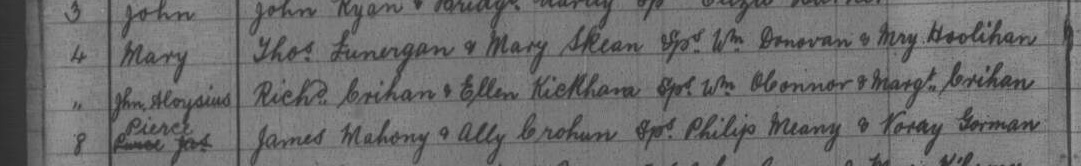 3 John John Ryan & Bridgt
4 Mary Thos. Lunergan & Mary Skean Sps. Wm Donovan & Mry Hoolihan
" Jhn Aloysius Richd. Crihan & Ellen Kickham Sps. Wm OConnor & Margt. Crihan
8 Pierce James Mahony & Ally Crohun Sps. Philip Meany & Noray Gorman